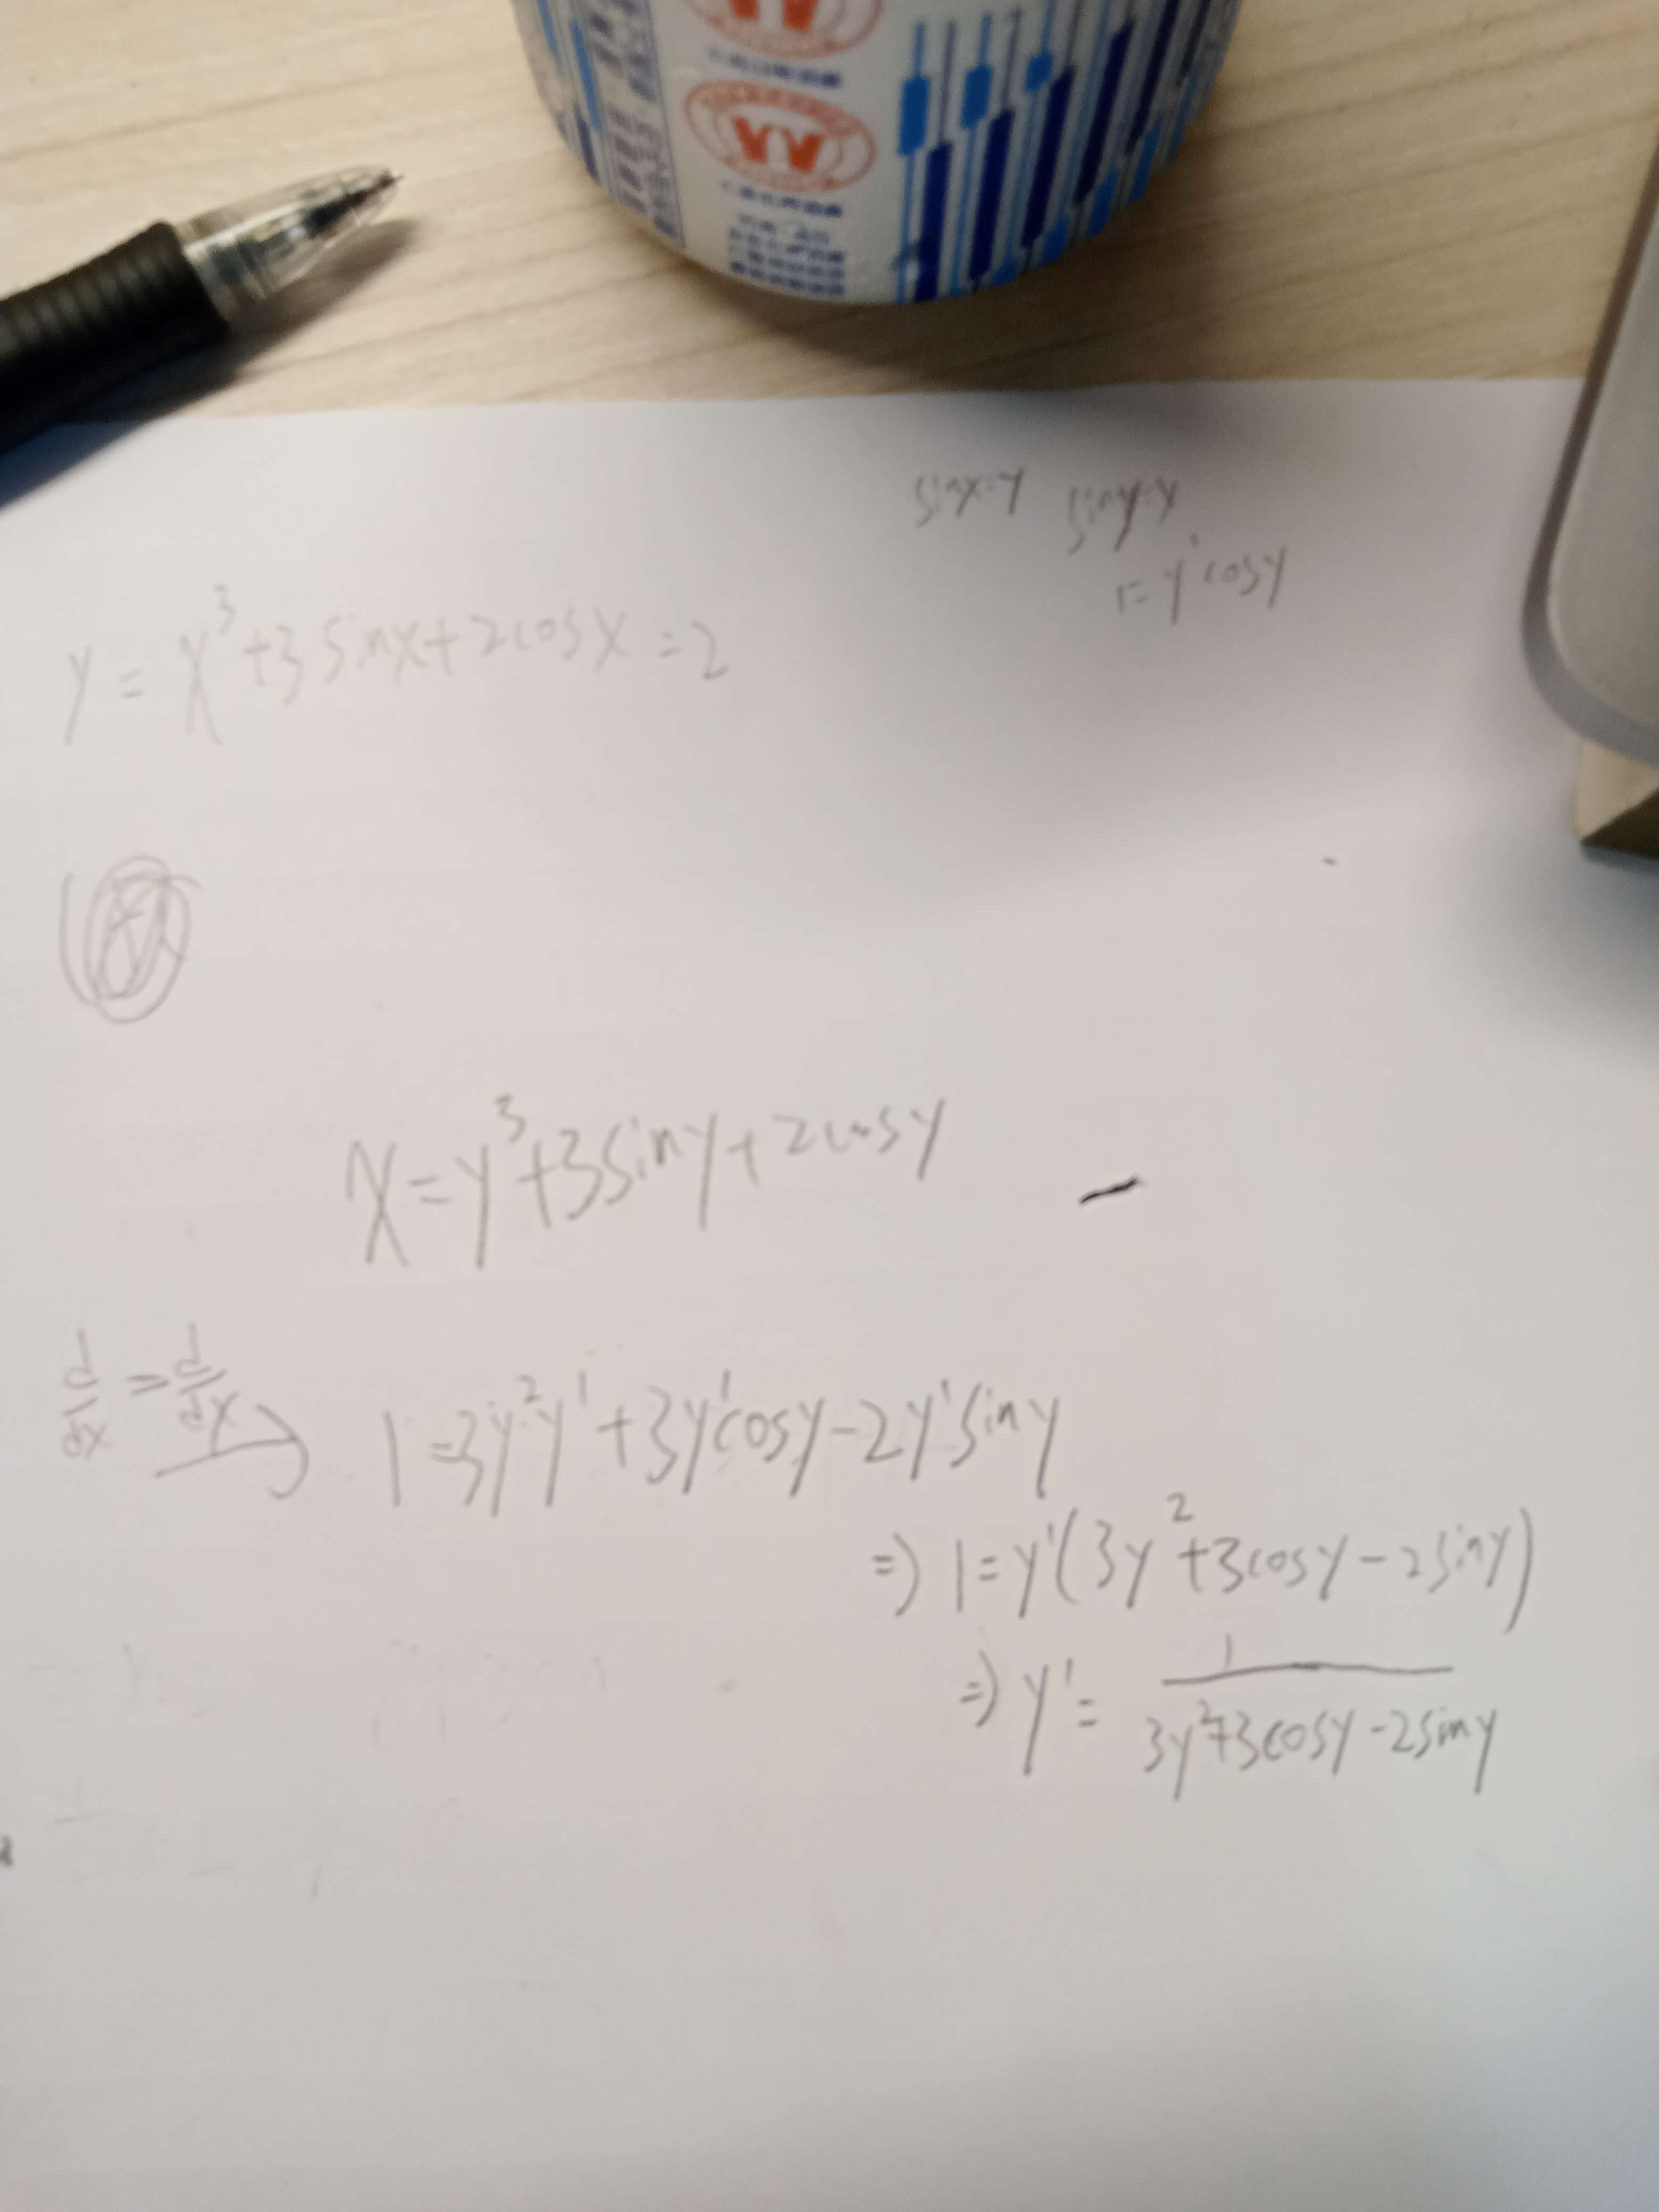 sinx=y siny=x
1=y'cosy
y = x³+3sinx+2cosx=2
x=y³+3siny+2cosy
d/dx = d/dx
1=3y²y'+3y'cosy-2y'siny
⇒ 1=y'(3y²+3cosy-2siny)
⇒ y'= 1/(3y²+3cosy-2siny)